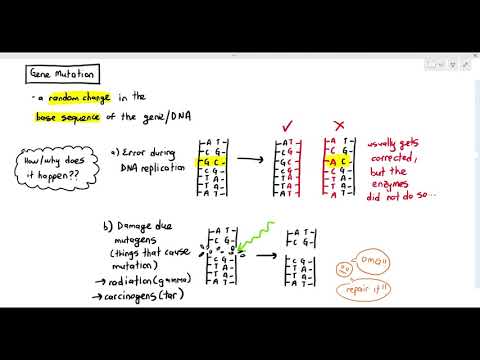 Gene Mutation
- a random change in the
base sequence of the gene/DNA
How/why does
it happen??
a) Error during
DNA replication
A T
C G
G C
C G
T A
T A
A T
✓
A T
C G
G C
C G
T A
T A
A T
X
A T
C G
A C
C G
T A
T A
A T
usually gets
corrected,
but the
enzymes
did not do so...
b) Damage due
mutagens
(things that cause
mutation)
→ radiation (gamma)
→ carcinogens (tar)
A T
C G
C G
T A
T A
A T
A T
C G
C G
T A
T A
A T
omg!!
repair it!!